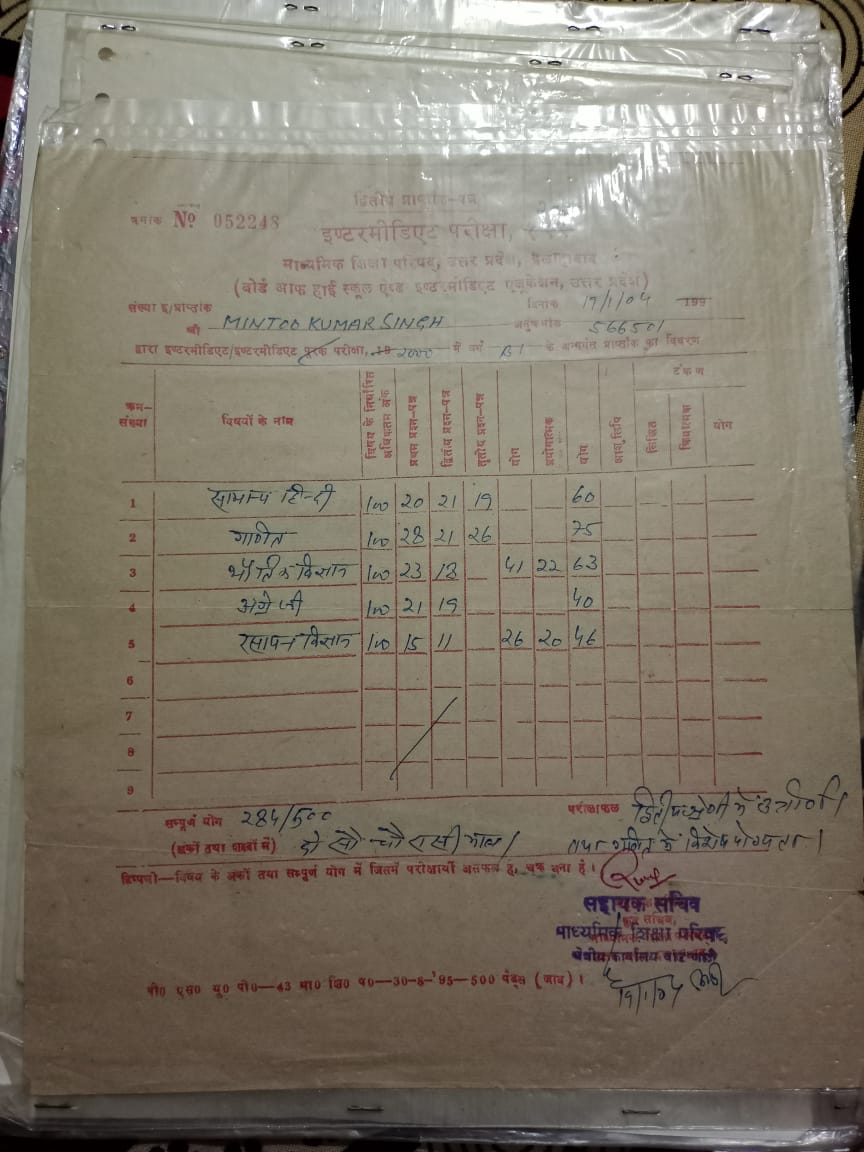 द्वितीय प्राप्तांक-पत्र
क्रमांक No 052248
इण्टरमीडिएट परीक्षा,
माध्यमिक शिक्षा परिषद्, उत्तर प्रदेश, इलाहाबाद
(बोर्ड आफ हाई स्कूल एण्ड इण्टरमीडिएट एजूकेशन, उत्तर प्रदेश)
संख्या इ/प्राप्तांक दिनांक 19/1/04 199
श्री MINTOO KUMAR SINGH अनुक्रमांक 566501
द्वारा इण्टरमीडिएट/इण्टरमीडिएट पूरक परीक्षा, 19 2000 में वर्ग B1 के अन्तर्गत प्राप्तांक का विवरण
क्रम-संख्या विषयों के नाम विषय के निर्धारित अधिकतम अंक प्रथम प्रश्न-पत्र द्वितीय प्रश्न-पत्र तृतीय प्रश्न-पत्र योग प्रयोगात्मक योग आशुलिपि टंकण लिखित क्रियात्मक योग
1 सामान्य हिन्दी 100 20 21 19 60
2 गणित 100 28 21 26 75
3 भौतिक विज्ञान 100 23 18 41 22 63
4 अंग्रेजी 100 21 19 40
5 रसायन विज्ञान 100 15 11 26 20 46
6
7
8
9
सम्पूर्ण योग 284/500 परीक्षाफल द्वितीय श्रेणी में उत्तीर्ण।
(अंकों तथा शब्दों में) दो सौ चौरासी मात्र। तथा गणित में विशेष योग्यता।
टिप्पणी—विषय के अंकों तथा सम्पूर्ण योग में जिसमें परीक्षार्थी असफल है, चक्र बना है।
सहायक सचिव
माध्यमिक शिक्षा परिषद्
क्षेत्रीय कार्यालय वाराणसी
19/1/04
पी० एस० यू० पी०—43 मा० शि० प०—30-8-'95—500 पैड्स (जाब)।